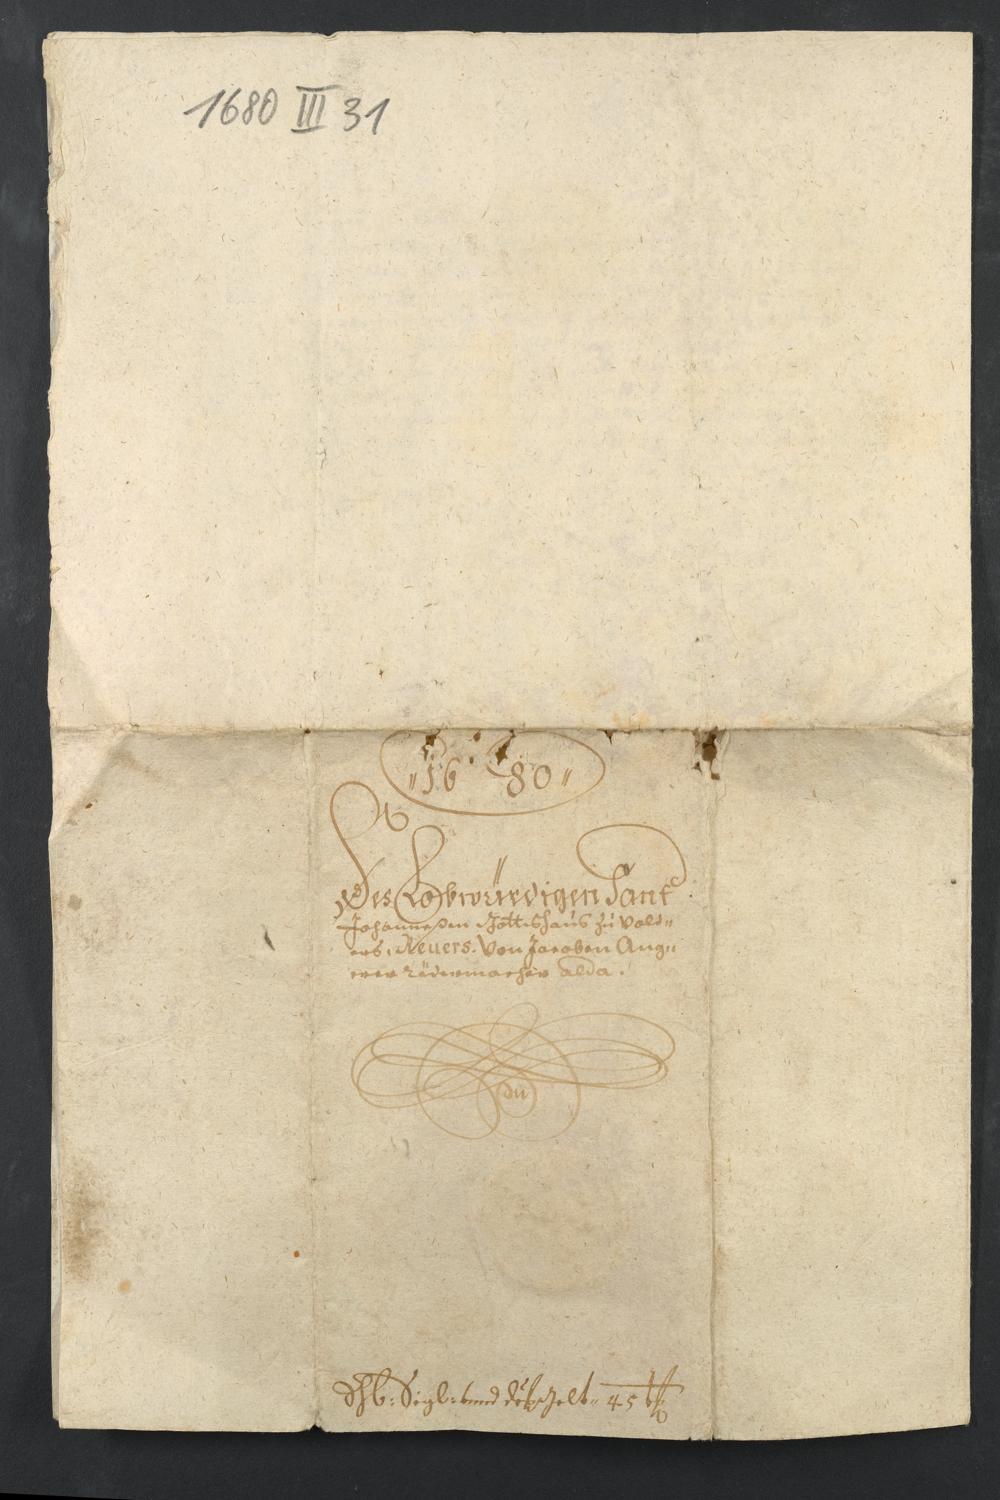 1680 III 31
„16 80„
Des Lobwürdigen Sant
Johannesen Gottshaus zu Vold„
ers, Revers. Von Jacoben Ang„
erer rädermacher alda.
Sigl: vnnd gelt„ 45